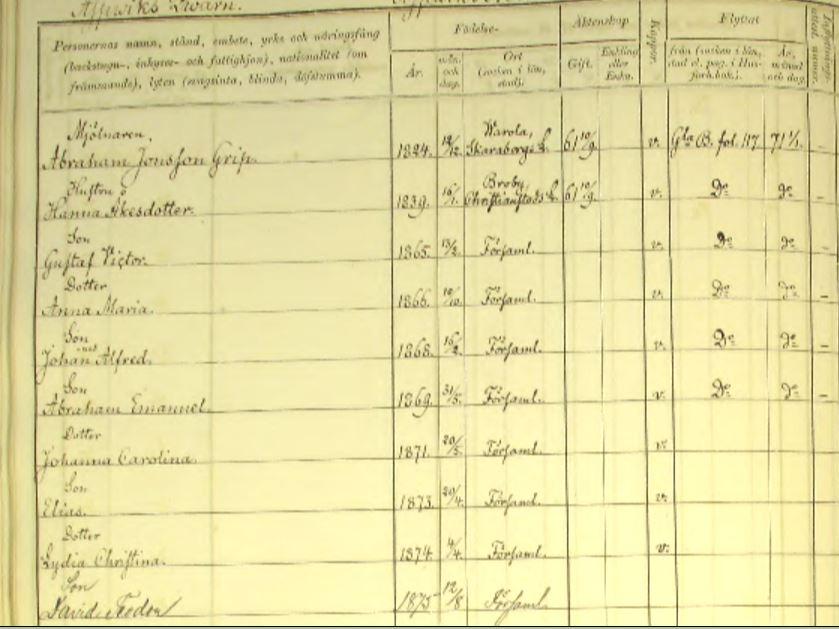 Qvarn.
Personernas namn, stånd, embete, yrke och näringsfång
(backstugu-, inhyses- och fattighjon), nationalitet (om
främmande), lyten (svagsinta, blinda, döfstumma).
Födelse-
År.
mån. och dag.
Ort
(socken i län, stad).
Äktenskap
Gift.
Enkling eller Enka.
Koppor.
Flyttat
från (socken i län, stad el. pag. i Husförh.bok.).
År, månad och dag.
Mjölnaren,
Abraham Jonsson Grip. 1824. 12/12. Warola, Skaraborgs L. 61 10/9. v. Gla B. fol. 117 71 1/1. –
Hustru
Hanna Åkesdotter. 1839. 16/1. Broby, Christianstads L. 61 10/9. v. Do do –
Son
Gustaf Victor. 1865. 13/2. Församl. v. Do do –
Dotter
Anna Maria. 1866. 10/10. Församl. v. Do do –
Son
Johannes Alfred. 1868. 16/2. Församl. v. Do do –
Son
Abraham Emanuel. 1869. 31/5. Församl. v. Do do –
Dotter
Johanna Carolina. 1871. 20/5. Församl. v.
Son
Elias. 1873. 20/4. Församl. v.
Dotter
Lydia Christina. 1874. 4/4. Församl. v.
Son
David Teodor 1875 12/8 Församl.